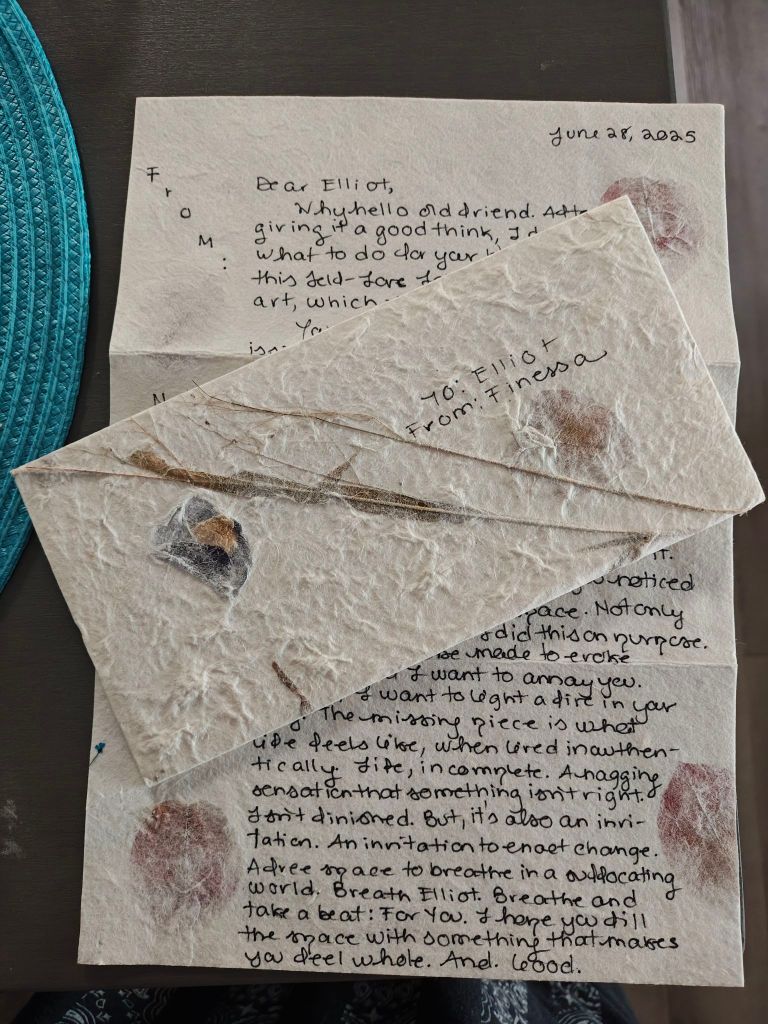 June 28, 2025
From:
Dear Elliot,
Why hello old friend. After
giving it a good think, I
what to do for your
this self-love
art, which
To: Elliot
From: Finessa
it.
noticed
space. Not only
did this on purpose.
be made to evoke
I want to annoy you.
I want to light a fire in your
The missing piece is what
life feels like, when lived inauthen-
tically. Life, incomplete. A nagging
sensation that something isn't right.
Isn't finished. But, it's also an invi-
tation. An invitation to enact change.
A free space to breathe in a suffocating
world. Breath Elliot. Breathe and
take a beat: For You. I hope you fill
the space with something that makes
you feel whole. And. Good.